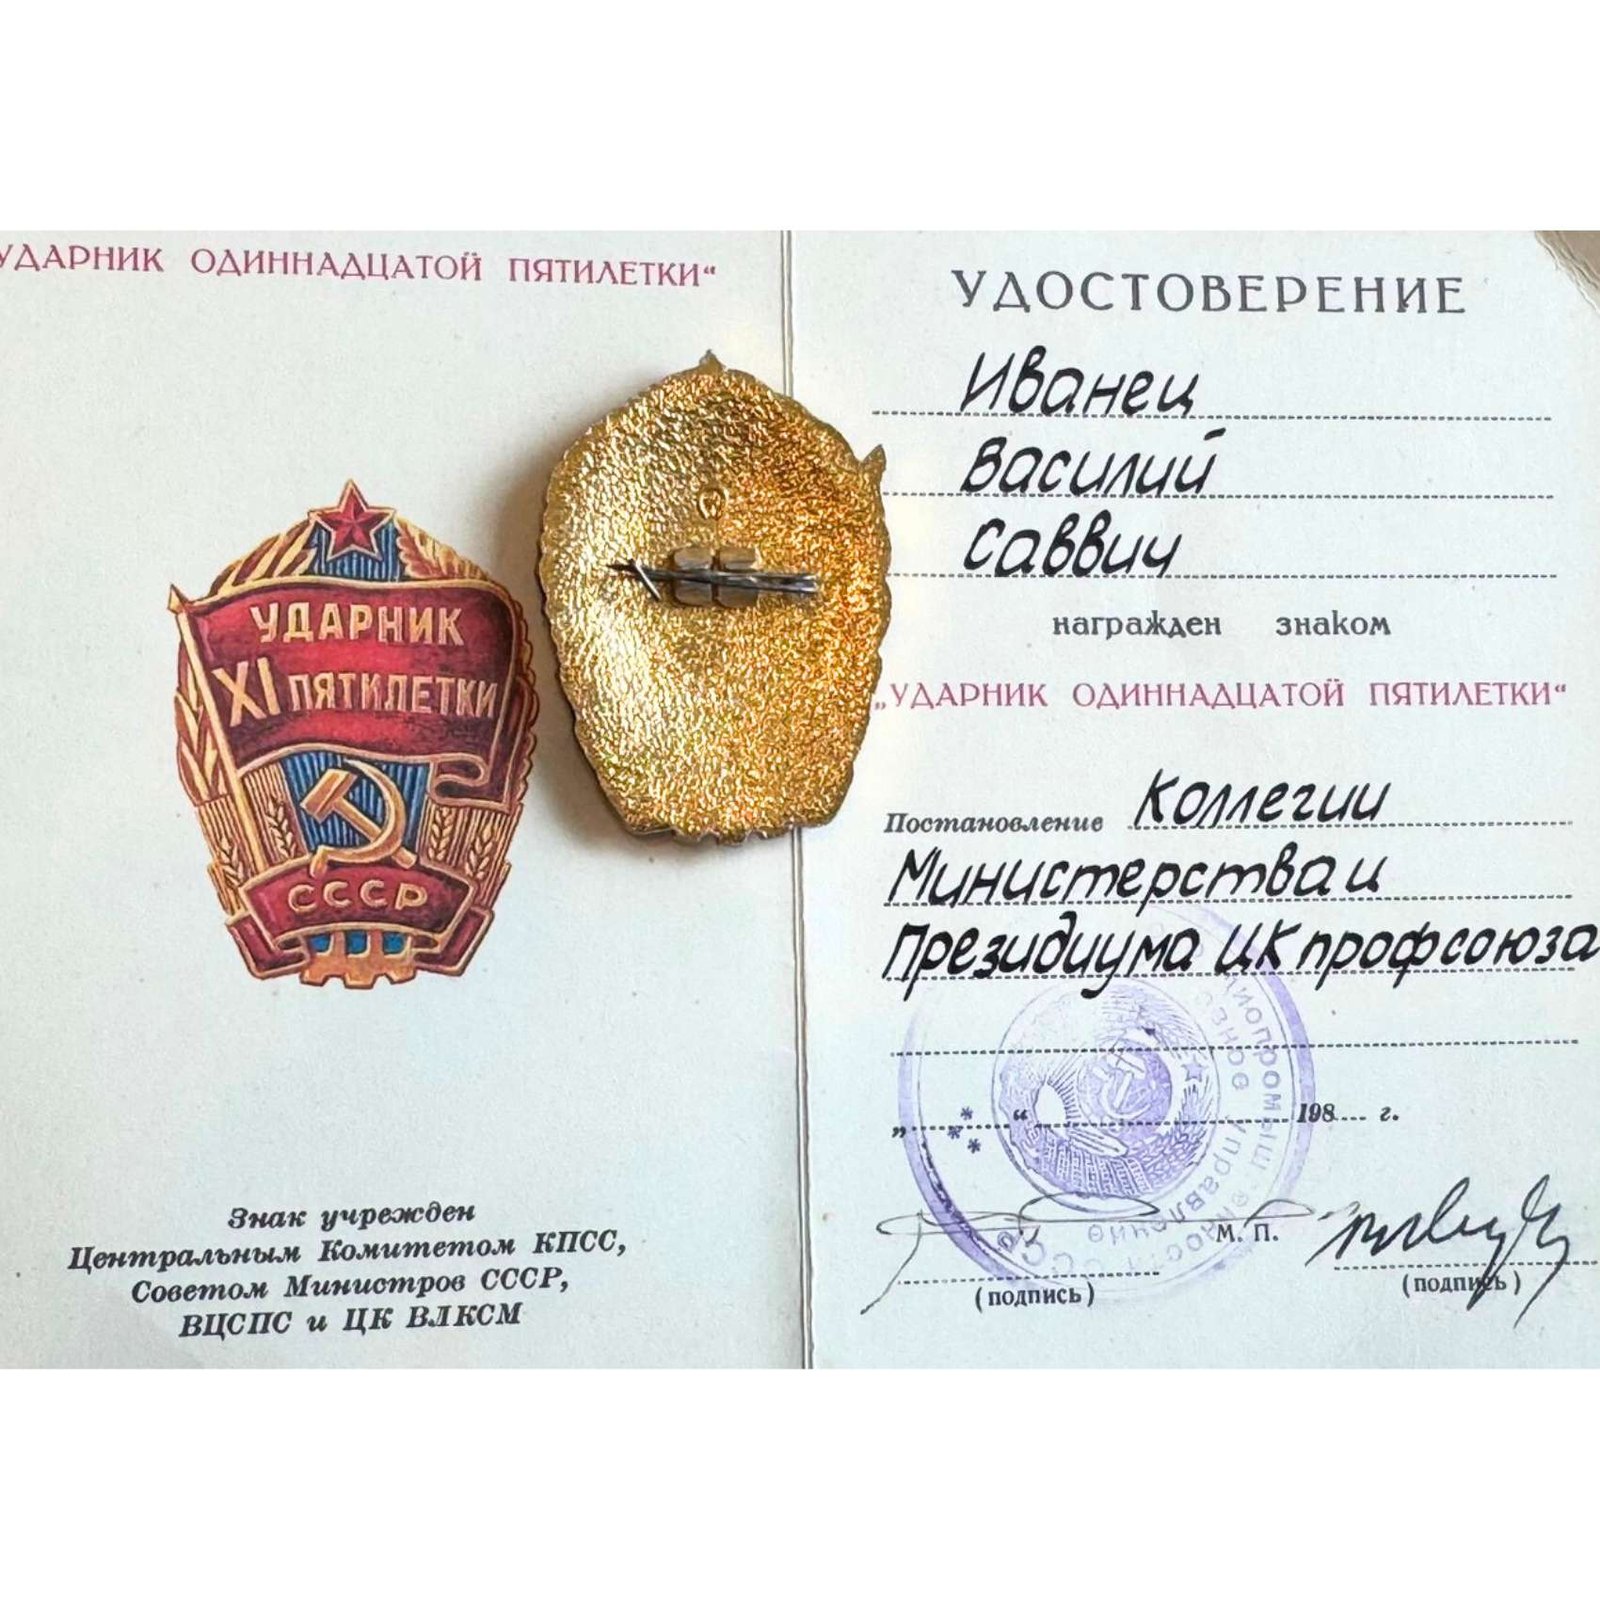 УДАРНИК ОДИННАДЦАТОЙ ПЯТИЛЕТКИ“
УДАРНИК
XI ПЯТИЛЕТКИ
СССР
Знак учрежден
Центральным Комитетом КПСС,
Советом Министров СССР,
ВЦСПС и ЦК ВЛКСМ
УДОСТОВЕРЕНИЕ
Иванец
Василий
Саввич
награжден знаком
„УДАРНИК ОДИННАДЦАТОЙ ПЯТИЛЕТКИ“
Постановление Коллегии
Министерства и
Президиума ЦК профсоюза
„ “ 198 г.
М. П.
(подпись) (подпись)